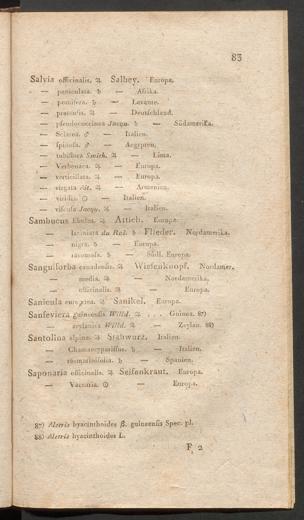 83
Salvia officinalis. ♃ Salbey. Europa.
— paniculata. ♄ — Afrika.
— pomifera. ♄ — Levante.
— pratensis. ♃ — Deutschland.
— pseudococcinea Jacqu. ♄ — Südamerika.
— Sclarea. ♂ — Italien.
— spinosa. ♂ — Aegypten.
— tubiflora Smith. ♃ — Lima.
— Verbenaca. ♃ — Europa.
— verticillata. ♃ — Europa.
— virgata Ait. ♃ — Armenien.
— viridis. ⊙ — Italien.
— viscosa Jacqu. ♃ — Italien.
Sambucus Ebulus. ♃ Attich. Europa.
— laciniata du Roi. ♄ Flieder. Nordamerika.
— nigra. ♄ — Europa.
— racemosa. ♄ — Südl. Europa.
Sanguisorba canadensis. ♃ Wiesenknopf. Nordamer.
— media. ♃ — Nordamerika.
— officinalis. ♃ — Europa.
Sanicula europaea. ♃ Sanikel. Europa.
Sanseviera guineensis Willd. ♃ . . . Guinea. 87)
— zeylanica Willd. ♃ — Zeylan. 88)
Santolina alpina. ♃ Italien.
— Chamaecyparissus. ♄ — Italien.
— rosmarinifolia. ♄ — Spanien.
Saponaria officinalis. ♃ Seifenkraut. Europa.
— Vaccaria. ⊙ — Europa.
87) Aletris hyacinthoides β. guineensis Spec. pl.
88) Aletris hyacinthoides L.
F 2